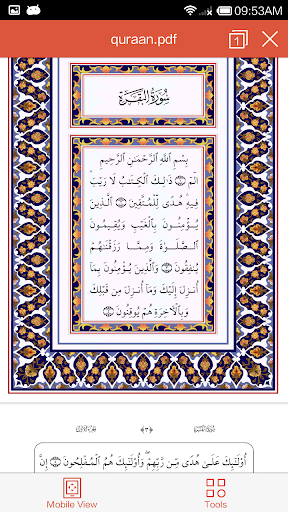 09:53AM
quraan.pdf
1
سُورَةُ البَقَرَةِ
بِسْمِ اللَّهِ الرَّحْمَٰنِ الرَّحِيمِ
الٓمٓ ۝ ذَٰلِكَ الْكِتَٰبُ لَا رَيْبَ
فِيهِ هُدًى لِّلْمُتَّقِينَ ۝ الَّذِينَ
يُؤْمِنُونَ بِالْغَيْبِ وَيُقِيمُونَ
الصَّلَوٰةَ وَمِمَّا رَزَقْنَٰهُمْ
يُنفِقُونَ ۝ وَالَّذِينَ يُؤْمِنُونَ بِمَا
أُنزِلَ إِلَيْكَ وَمَآ أُنزِلَ مِن قَبْلِكَ
وَبِالْءَاخِرَةِ هُمْ يُوقِنُونَ ۝
﴿٣﴾
أُوْلَٰٓئِكَ عَلَىٰ هُدًى مِّن رَّبِّهِمْ ۖ وَأُوْلَٰٓئِكَ هُمُ الْمُفْلِحُونَ ۝ إِنَّ
Mobile View
Tools